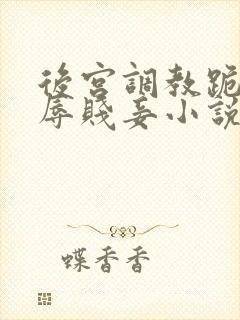 後宮調教跪
辱賤妾小說
蝶香香